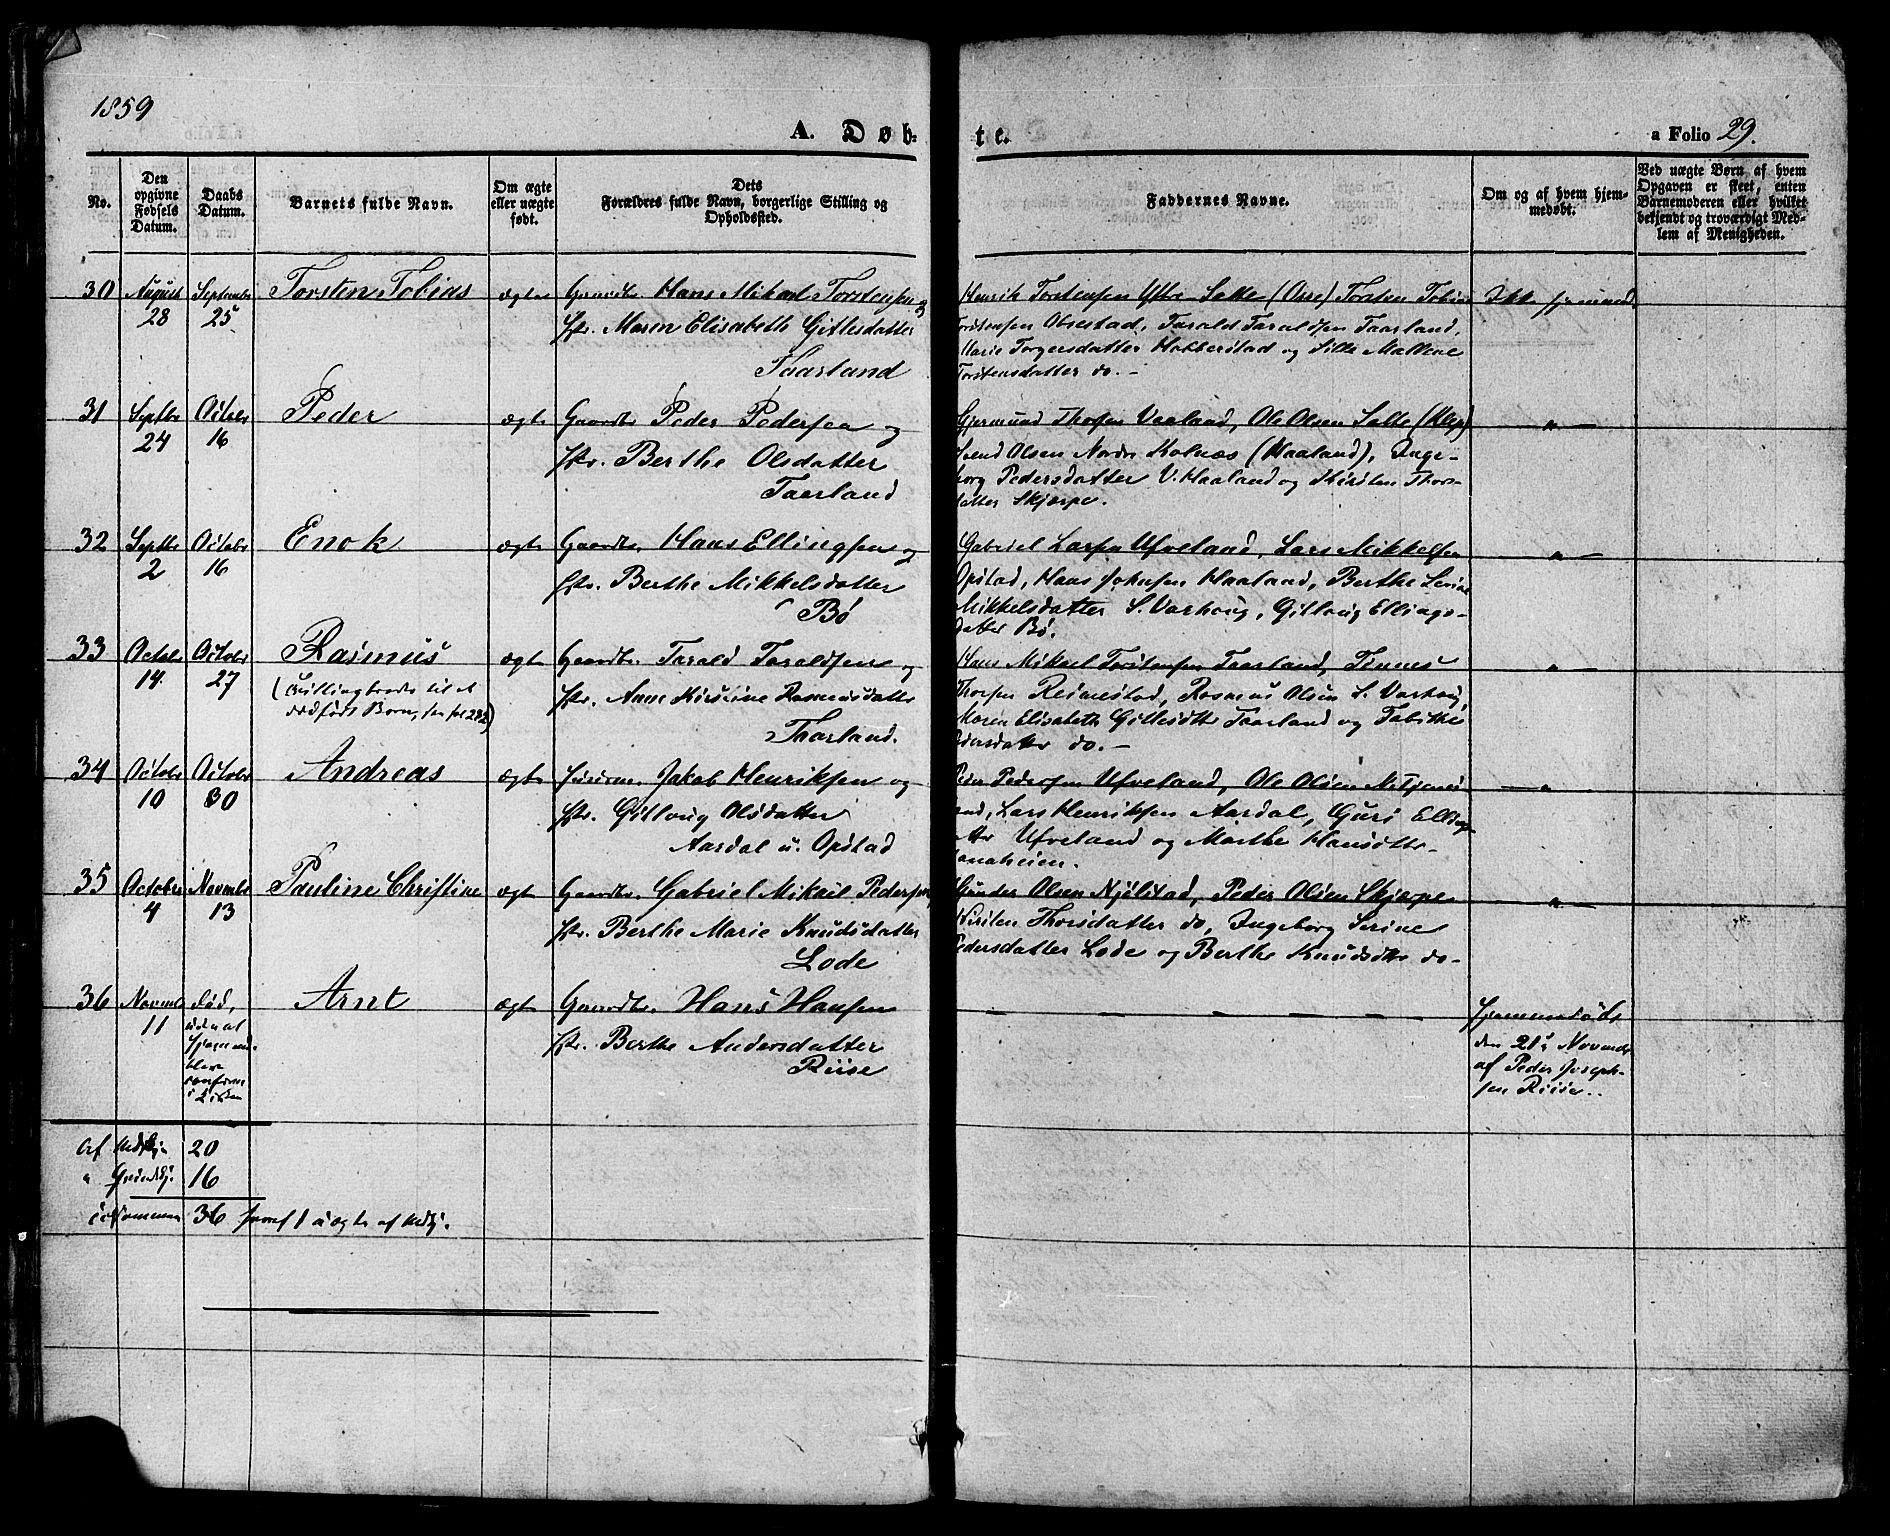 1859
A. Døb-
te.
a Folio 29.
No.
Den opgivne Fødsels Datum.
Daabs Datum.
Barnets fulde Navn.
Om ægte eller uægte født.
Dets Forældres fulde Navn, borgerlige Stilling og Opholdssted.
Faddernes Navne.
Om og af hvem hjemmedøbt.
Ved uægte Børn af hvem Opgaven er skeet, enten Barnemoderen eller hvilket bekjendt og troværdigt Medlem af Menigheden.
30 August 28 September 25 Torsten Tobias ægte Gaardbr. Hans Mikael Torstensen og
Hr. Maren Elisabeth Gitlesdatter
Taarland
Henrik Torstensen Yttre Salte (Orre) Torsten Tobias
Torstensen Obrestad, Tarald Taraldsen Taarland,
Marie Torgersdatter Habberstad og Sille Mallene
Torstensdatter do. -
Ikke hjemmed.
31 Septbr 24 Octobr 16 Peder ægte Gaardbr. Peder Pedersen og
Hr. Berthe Olsdatter
Taarland
Gjermund Thorsen Vaaland, Ole Olsen Salte (Klep)
Svend Olsen Nordre Kolnæs (Haaland), Inge-
borg Pedersdatter V. Haaland og Kirsten Thors-
datter Skjærpe.
— " —
32 Septbr 2 Octobr 16 Enok ægte Gaardbr. Hans Ellingsen og
Hr. Berthe Mikkelsdatter
Bø
Gabriel Larsen Ufveland, Lars Mikkelsen
Opstad, Hans Johnsen Haaland, Berthe Serine
Mikkelsdatter S. Varhoug, Gitloug Ellings-
datter Bø.
— " —
33 Octobr 14 Octobr 27 Rasmus ægte Gaardbr. Tarald Taraldsen og
(Tvillingbroder til et
dødfødt Barn, se fol 282)
Hr. Anne Kirstine Rasmusdatter
Thaarland.
Hans Mikael Torstensen Taarland, Tønnes
Thorsen Reimestad, Rasmus Olsen S. Varhoug,
Maren Elisabeth Gitlesdtr Taarland og Tabithe
Pedersdatter do. -
— " —
34 Octobr 10 Octobr 30 Andreas ægte Jakob Henriksen og
Hr. Gitloug Olsdatter
Aardal u. Opstad
Peder Pedersen Ufveland, Ole Olsen
Lars Henriksen Aardal, Guri Ellings-
Ufveland og Marthe Hansdtr
— " —
35 October 4 Novembr 13 Pauline Christine ægte Gaardbr. Gabriel Mikael Pedersen
Hr. Berthe Marie Knudsdatter
Lode
Gunder Olsen Njølstad, Peder Olsen Skjærpe
Kirsten Thorsdatter do, Ingeborg Serine
Pedersdatter Lode og Berthe Knudsdtr do-
— " —
36 Novembr 11 Død, uden at Hjemmed. blev confirm. i Kirken Arnt ægte Gaardbr. Hans Hansen
Hr. Berthe Andersdatter
Riise
— — — — —
Hjemmedøbt
den 21de Novembr
af Peder Joseph-
sen Riise.
Af Undskj. 20
" Grindskj. 16
ialt 36 hvoraf 1 uægte af Undskj.